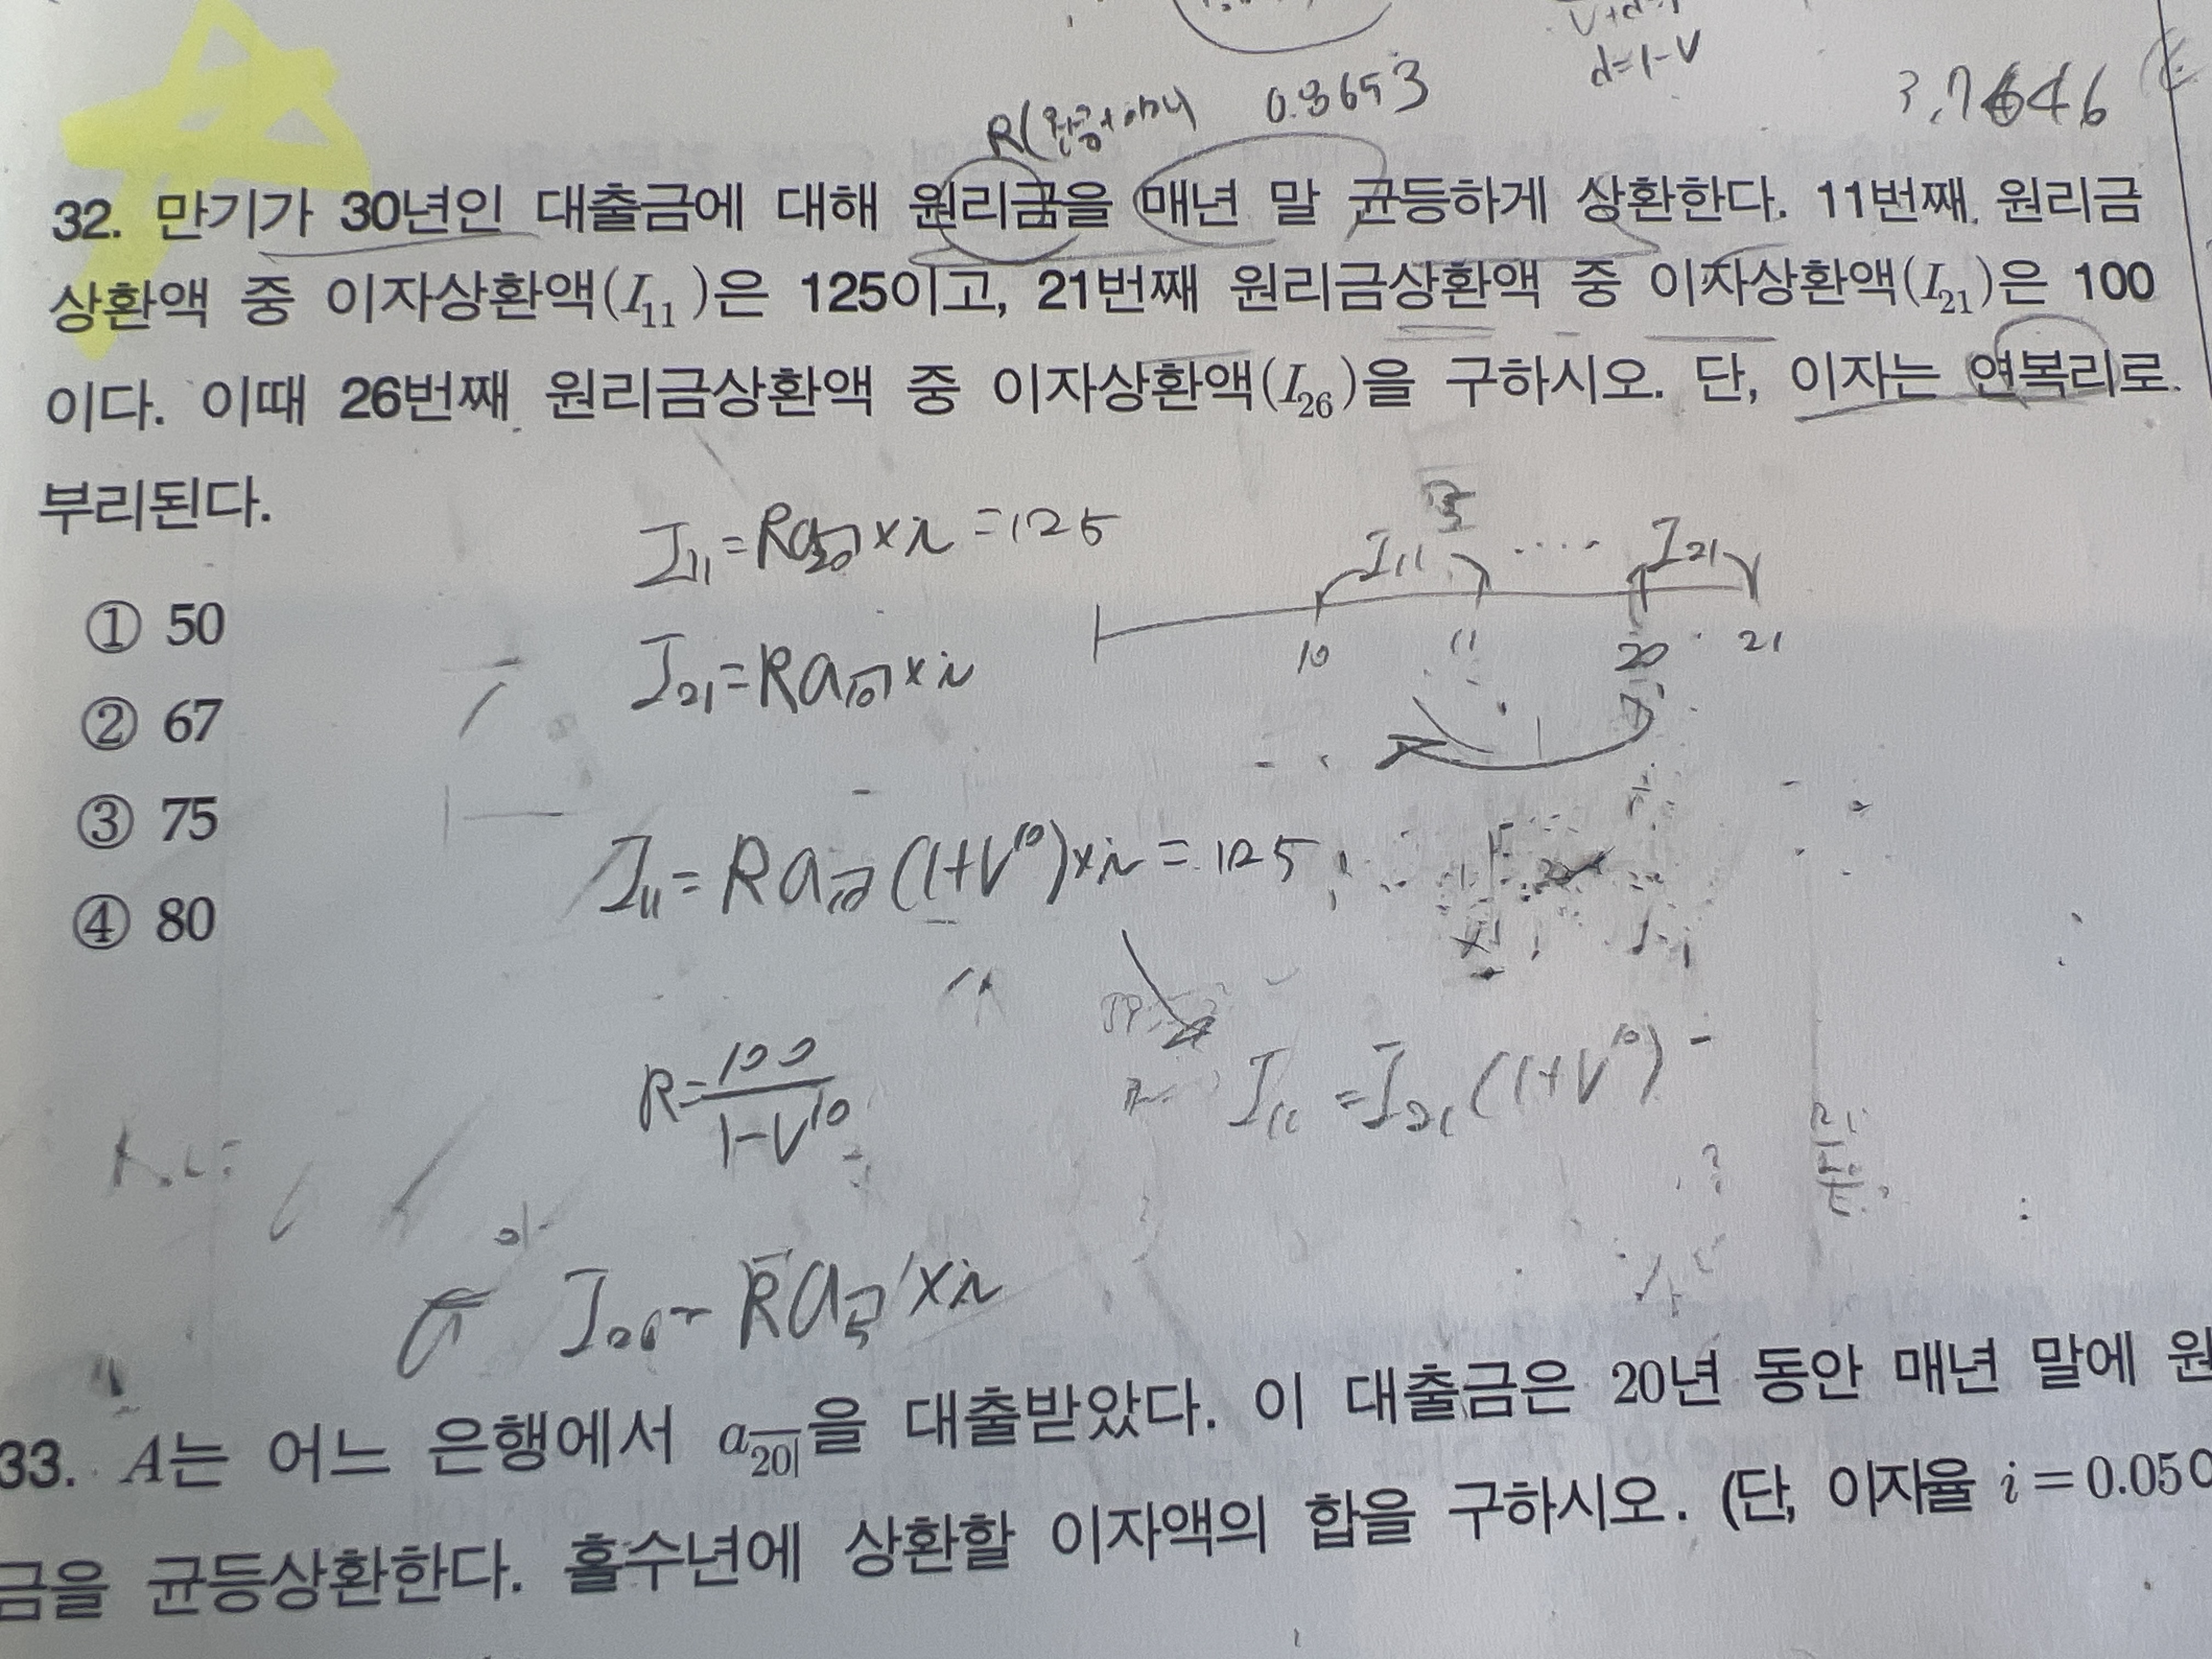 d=1-V
0.8653
3.7646
32. 만기가 30년인 대출금에 대해 원리금을 매년 말 균등하게 상환한다. 11번째 원리금
상환액 중 이자상환액(I₁₁)은 125이고, 21번째 원리금상환액 중 이자상환액(I₂₁)은 100
이다. 이때 26번째 원리금상환액 중 이자상환액(I₂₆)을 구하시오. 단, 이자는 연복리로
부리된다.
① 50
② 67
③ 75
④ 80
I₁₁=Ra20⌉×i=125
I₁₁ ···· I₂₁
10 11 20 21
I₂₁=Ra10⌉×i
I₁₁=Ra10⌉(1+V¹⁰)×i=125
R=100/(1-V¹⁰)
I₁₁=I₂₁(1+V¹⁰)
I₂₆=Ra5⌉×i
33. A는 어느 은행에서 a20⌉을 대출받았다. 이 대출금은 20년 동안 매년 말에 원
금을 균등상환한다. 홀수년에 상환할 이자액의 합을 구하시오. (단, 이자율 i=0.05